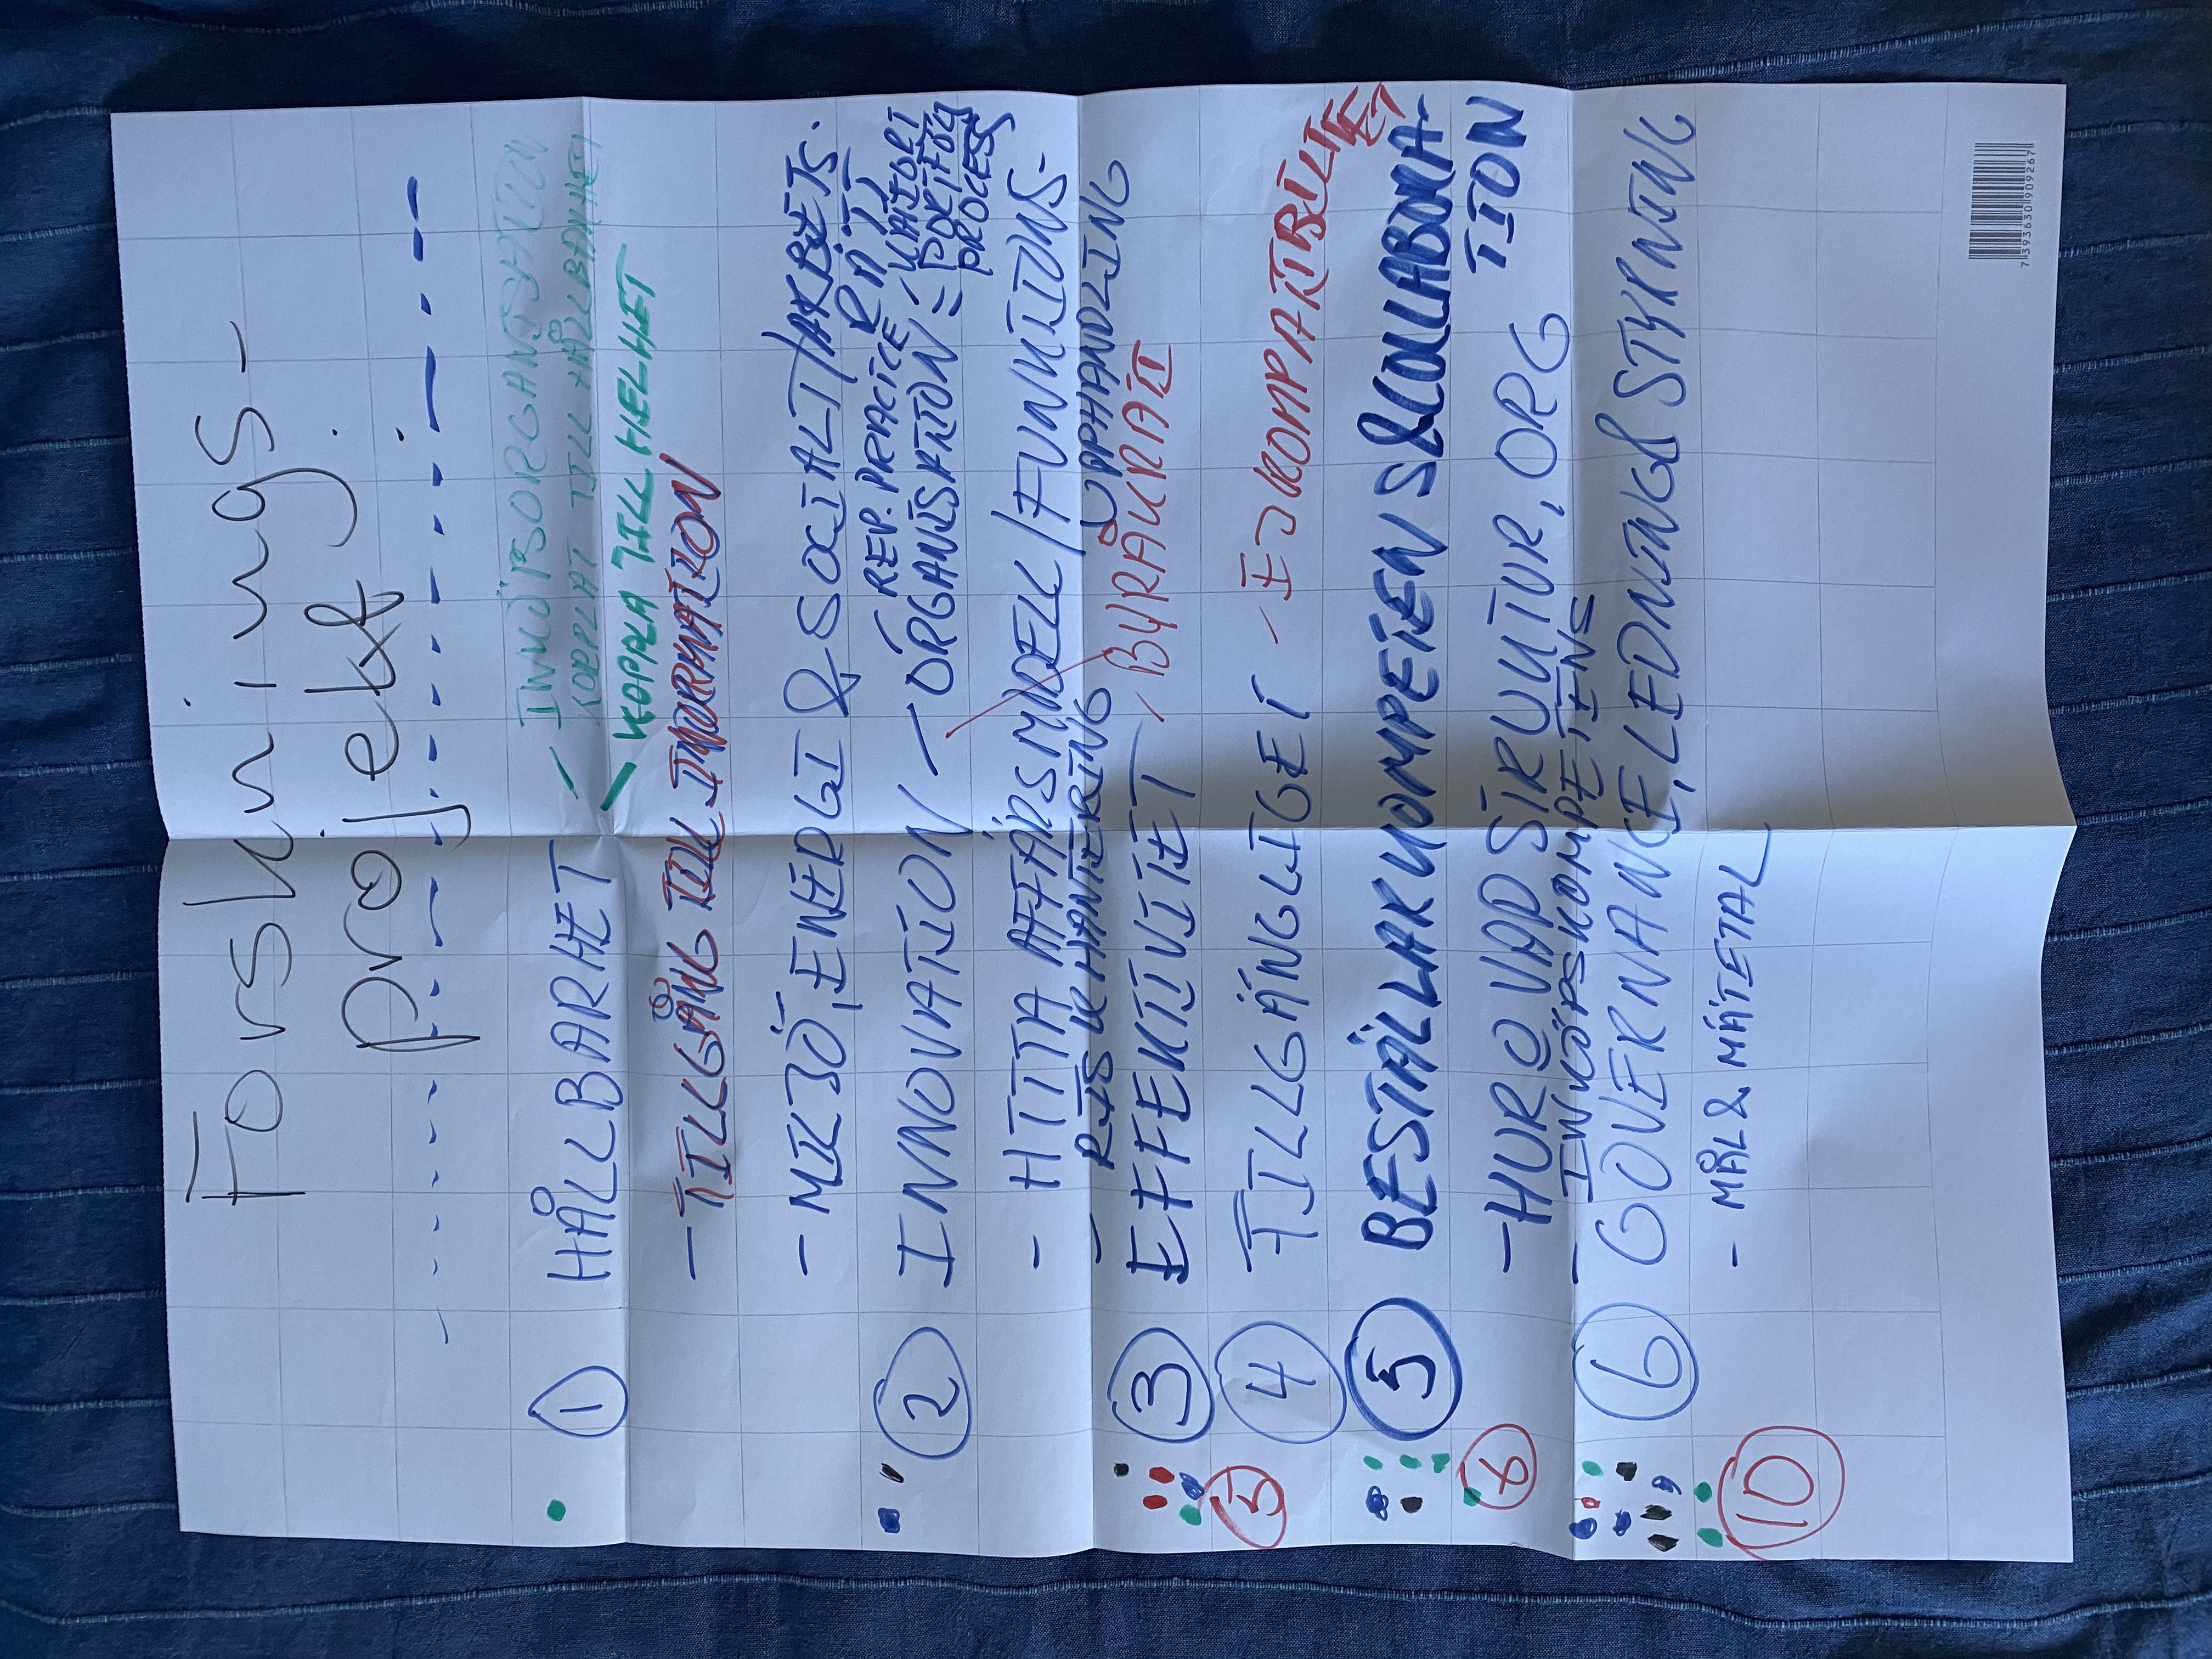 Forsknings-
projekt.
① HÅLLBARHET
- INKÖPSORGANISATION
KOPPLAT TILL HÅLLBARHET
- KOPPLA TILL HELHET
- TILLGÅNG TILL INFORMATION
- MILJÖ, ENERGI & SOCIALT/ARBETS.
RÄTT
② INNOVATION
- REV. PRACICE
- ORGANISATION =
PROCESS
- HITTA AFFÄRSMODELL/FUNKTIONS-
UPPHANDLING
- RISKHANTERING
③ EFFEKTIVITET - BYRÅKRATI
5
④ TILLGÄNGLIGET - EJ KOMPATIBILITET
⑤ BESTÄLLARKOMPETEN S & COLLABORA-
TION
- HUR @ VAD STRUKTUR, ORG
- INKÖPSKOMPETENS
⑥ GOVERNANCE, LEDNING & STYRNING
- MÅL & MÄTETAL
10
7393630909267